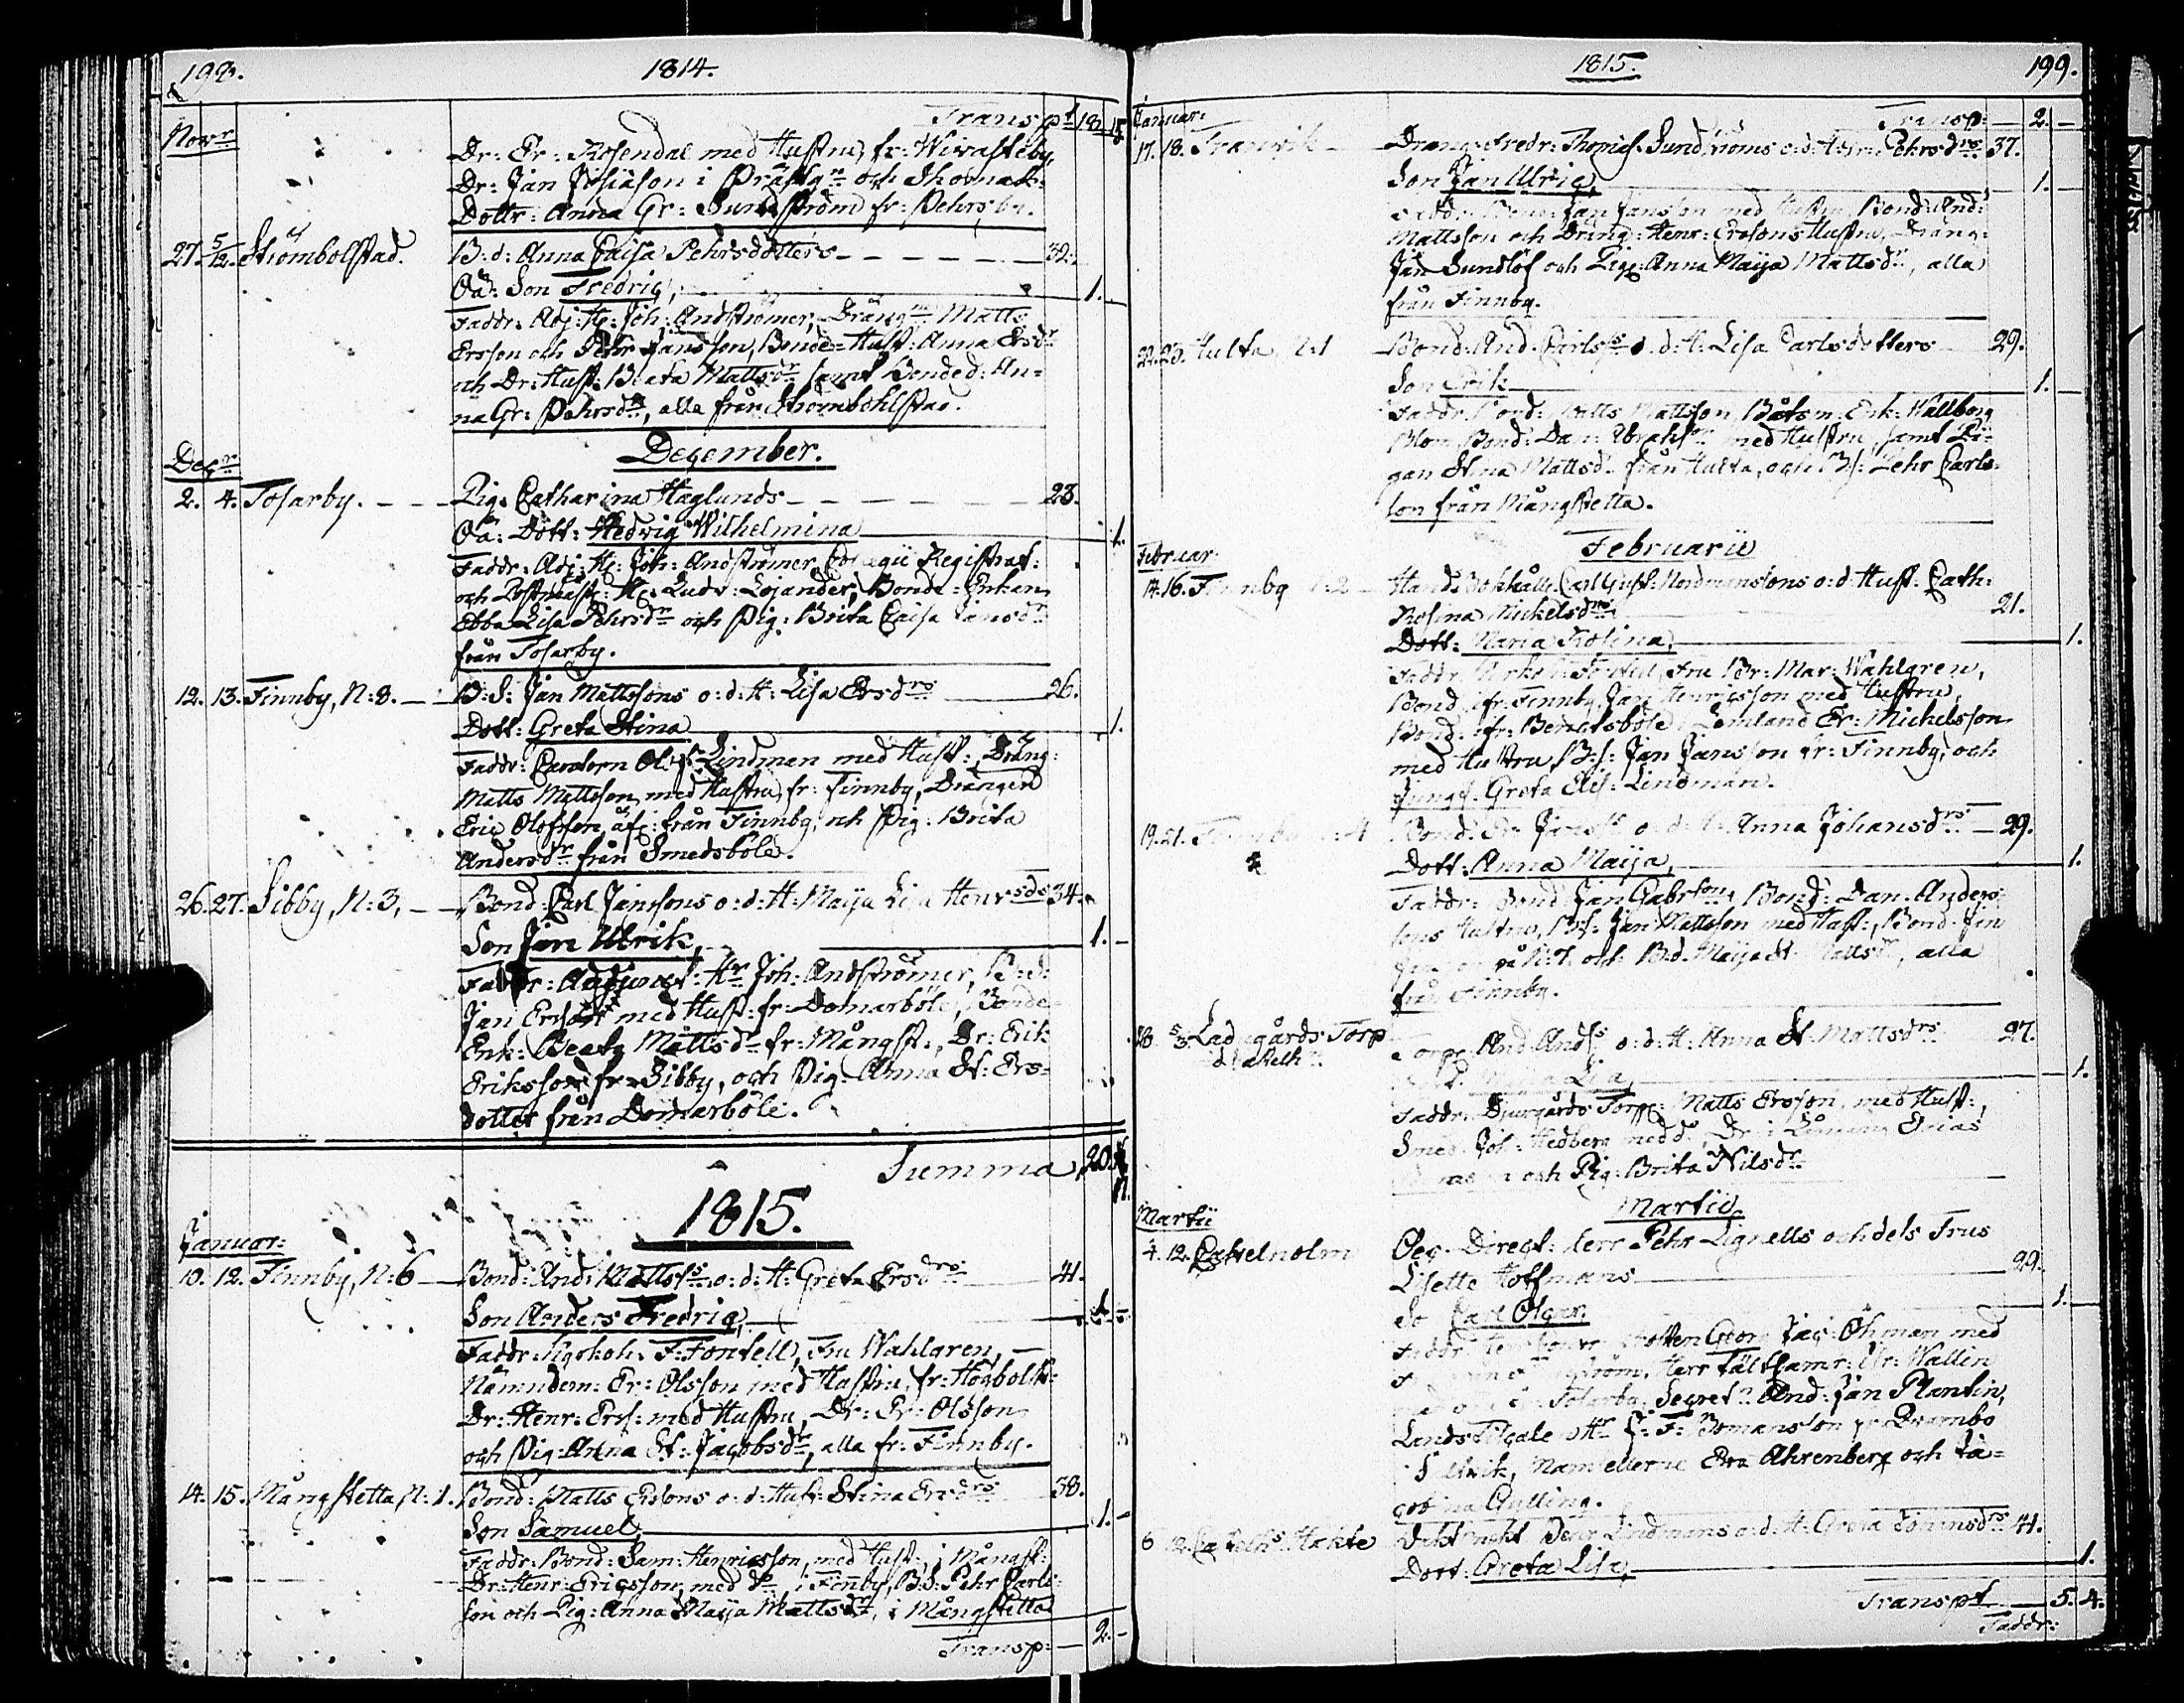 198. 1814.
Transpt 18 15
Novr
Dr: Er: Rosendal med Hustru, fr: Wivasteby,
Dr: Jan Josiason i Prästgn och Thomas-
Dottr: Anna Gr: Sundström fr: Pehrsby.
27. 5/12. Strömbolstad. B:d: Anna Caisa Pehrsdotters 32.
Oä: Son Fredric, 1.
Faddr: Adj: H: Joh: Andströmer, Drängne Matts
Ersson och Pehr Jansson, Bonde-Hust: Anna Ersdr
och Dr: Hust: Beata Mattsdr samt Bonded: An-
na Gr: Pehrsdr, alla från Strömbohlstad.
December.
Decr
2. 4. Tosarby. Pig. Catharina Haglunds 23.
Oä: Dott: Hedvig Wilhelmina 1.
Faddr: Adj: H: Joh: Andströmer, Collegii Registrat:
och Postmäst: H: Ludv: Lojander, Bonde-Enkan
Ebba Lisa Pehrsdr och Pig: Brita Caisa Jansdr
från Tosarby.
12. 13. Finnby, N:8. B:S: Jan Mattssons o:d:H: Lisa Ersdrs 26.
Dott: Greta Stina 1.
Faddr: Lindman med Hust:, Dräng:
Matts Mattsson med Hustru fr: Finnby, Drängen
Eric Olofsson äfv: från Finnby, och Pig: Brita
Andersdr från Smedsböle.
26. 27. Sibby, N:3, Bond: Carl Janssons o:d:H: Maija Lisa Henrsds 34.
Son Jan Ulrik, 1.
Faddr: Adjunct: Hr Joh: Andströmer, B:d:
Jan Ersson med Hust: fr: Domarböle, Bonde
Enk: Beata Mattsdr fr: Mångst:, Dr: Erik
Eriksson fr: Sibby, och Pig: Anna St: Ers-
dotter från Domarböle.
Summa, 20.
1815.
Januar:
10. 12. Finnby, N:6 Bond: And: Mattsss o:d:H: Greta Ersdrs 41.
Son Anders Fredric, 1.
Faddr: F: Fontell, Fru Wahlgren,
Nämndem: Er: Olsson med Hustru, fr: Högbolst:
Dr: Henr: Ers: med Hustru, Dr: Er: Olsson
och Pig: Anna St: Jacobsdr, alla fr: Finnby.
14. 15. Mångstetta, N:1. Bond: Matts Erssons o:d:Hust: Stina Ersdrs 38.
Son Samuel, 1.
Faddr: Bond: Sam: Henricsson, med Hust:, i Mångst:
Dr: Henr: Ericsson, med do, i Finnby, B:S: Pehr Carls-
son och Pig: Anna Maija Mattsdr, i Mångstetta
Transp: 2.
1815. 199.
Januar: Transp: 2.
17. 18. Tranvik Dräng: Fredr: Thomas Sundströms o:d:H: Pehrsdrs 37.
Son Jan Ulric, 1.
Faddr: Bond: Jan Jansson med Hustru, Bond: And:
Mattsson och Dräng: Henr: Erssons Hustru, Dräng:
Jan Sundlöf och Pig: Anna Maija Mattsdr, alla
från Finnby.
22. 23. Hulta, N:1 Bond: And: Carlsss o:d:H: Lisa Carlsdotters 29.
Son Erik 1.
Faddr: Bond: Matts Mattsson, Båtsm: Enk: Wallborg
Blom, Bond: Dan: Abrahss med Hustru, samt Pi-
gan Stina Mattsdr från Hulta, och B:S: Pehr Carls-
son från Mångstetta.
Februarii
Februar:
14. 16. Finnby N:2 Hand: Bokhåll: Carl Gust: Nordmanssons o:d:Hust: Cath:
Rosina Mickelsdrs 21.
Dott: Maria Rosina, 1.
Faddr: Fontell, Fru Br: Mar: Wahlgren,
Bond: fr: Finnby, Jan Henricsson med Hustru,
Bond: fr: Bengtsböle i Lemland Er: Michelsson
med Hustru, B:S: Jan Jansson fr: Finnby, och
Jungf: Greta Elis: Lindman.
19. 21. Finnby N:4 Bond: Er: Janss o:d:H: Anna Johansdrs 29.
Dott: Anna Maija, 1.
Faddr: Bond: Jan Gabrsson, Bond: Dan: Anders-
sons Hustru, B:S: Jan Mattsson med Hust:, Bond: Jan
på N:7 och B:d: Maija St: Mattsdr, alla
från Finnby.
28. 5/3 Ladugårds Torp Torp: And: Andss o:d:H: Anna St: Mattsdrs 27.
Lisa, 1.
Faddr: Djurgårds Torp: Matts Ersson, med Hust:,
Smed: Joh: Hedberg med do, Dr:
och Pig: Brita Nilsdr
Martii.
Martii
4. 12. Castelholm Oec: Direct: Herr Pehr Lignells och dess Frus
Lisette Hoffmans 22.
So Carl Olger. 1.
Faddr: Georg Jac: Öhman med
Herr Fältkamr: Wallin
Tosarby, Secret: And: Jan Plantin,
Landsfiscalen Hr J: F: Bomansson fr: Brambo
i Saltvik, Mamsellerne Eva Ahrenberg och Ja-
cobina Gylling.
6. 12. Castelhs Häkte Lindmans o:d:H: Greta 41.
Dott: Greta Lisa, 1.
Transpt 5. 4.
Faddr: